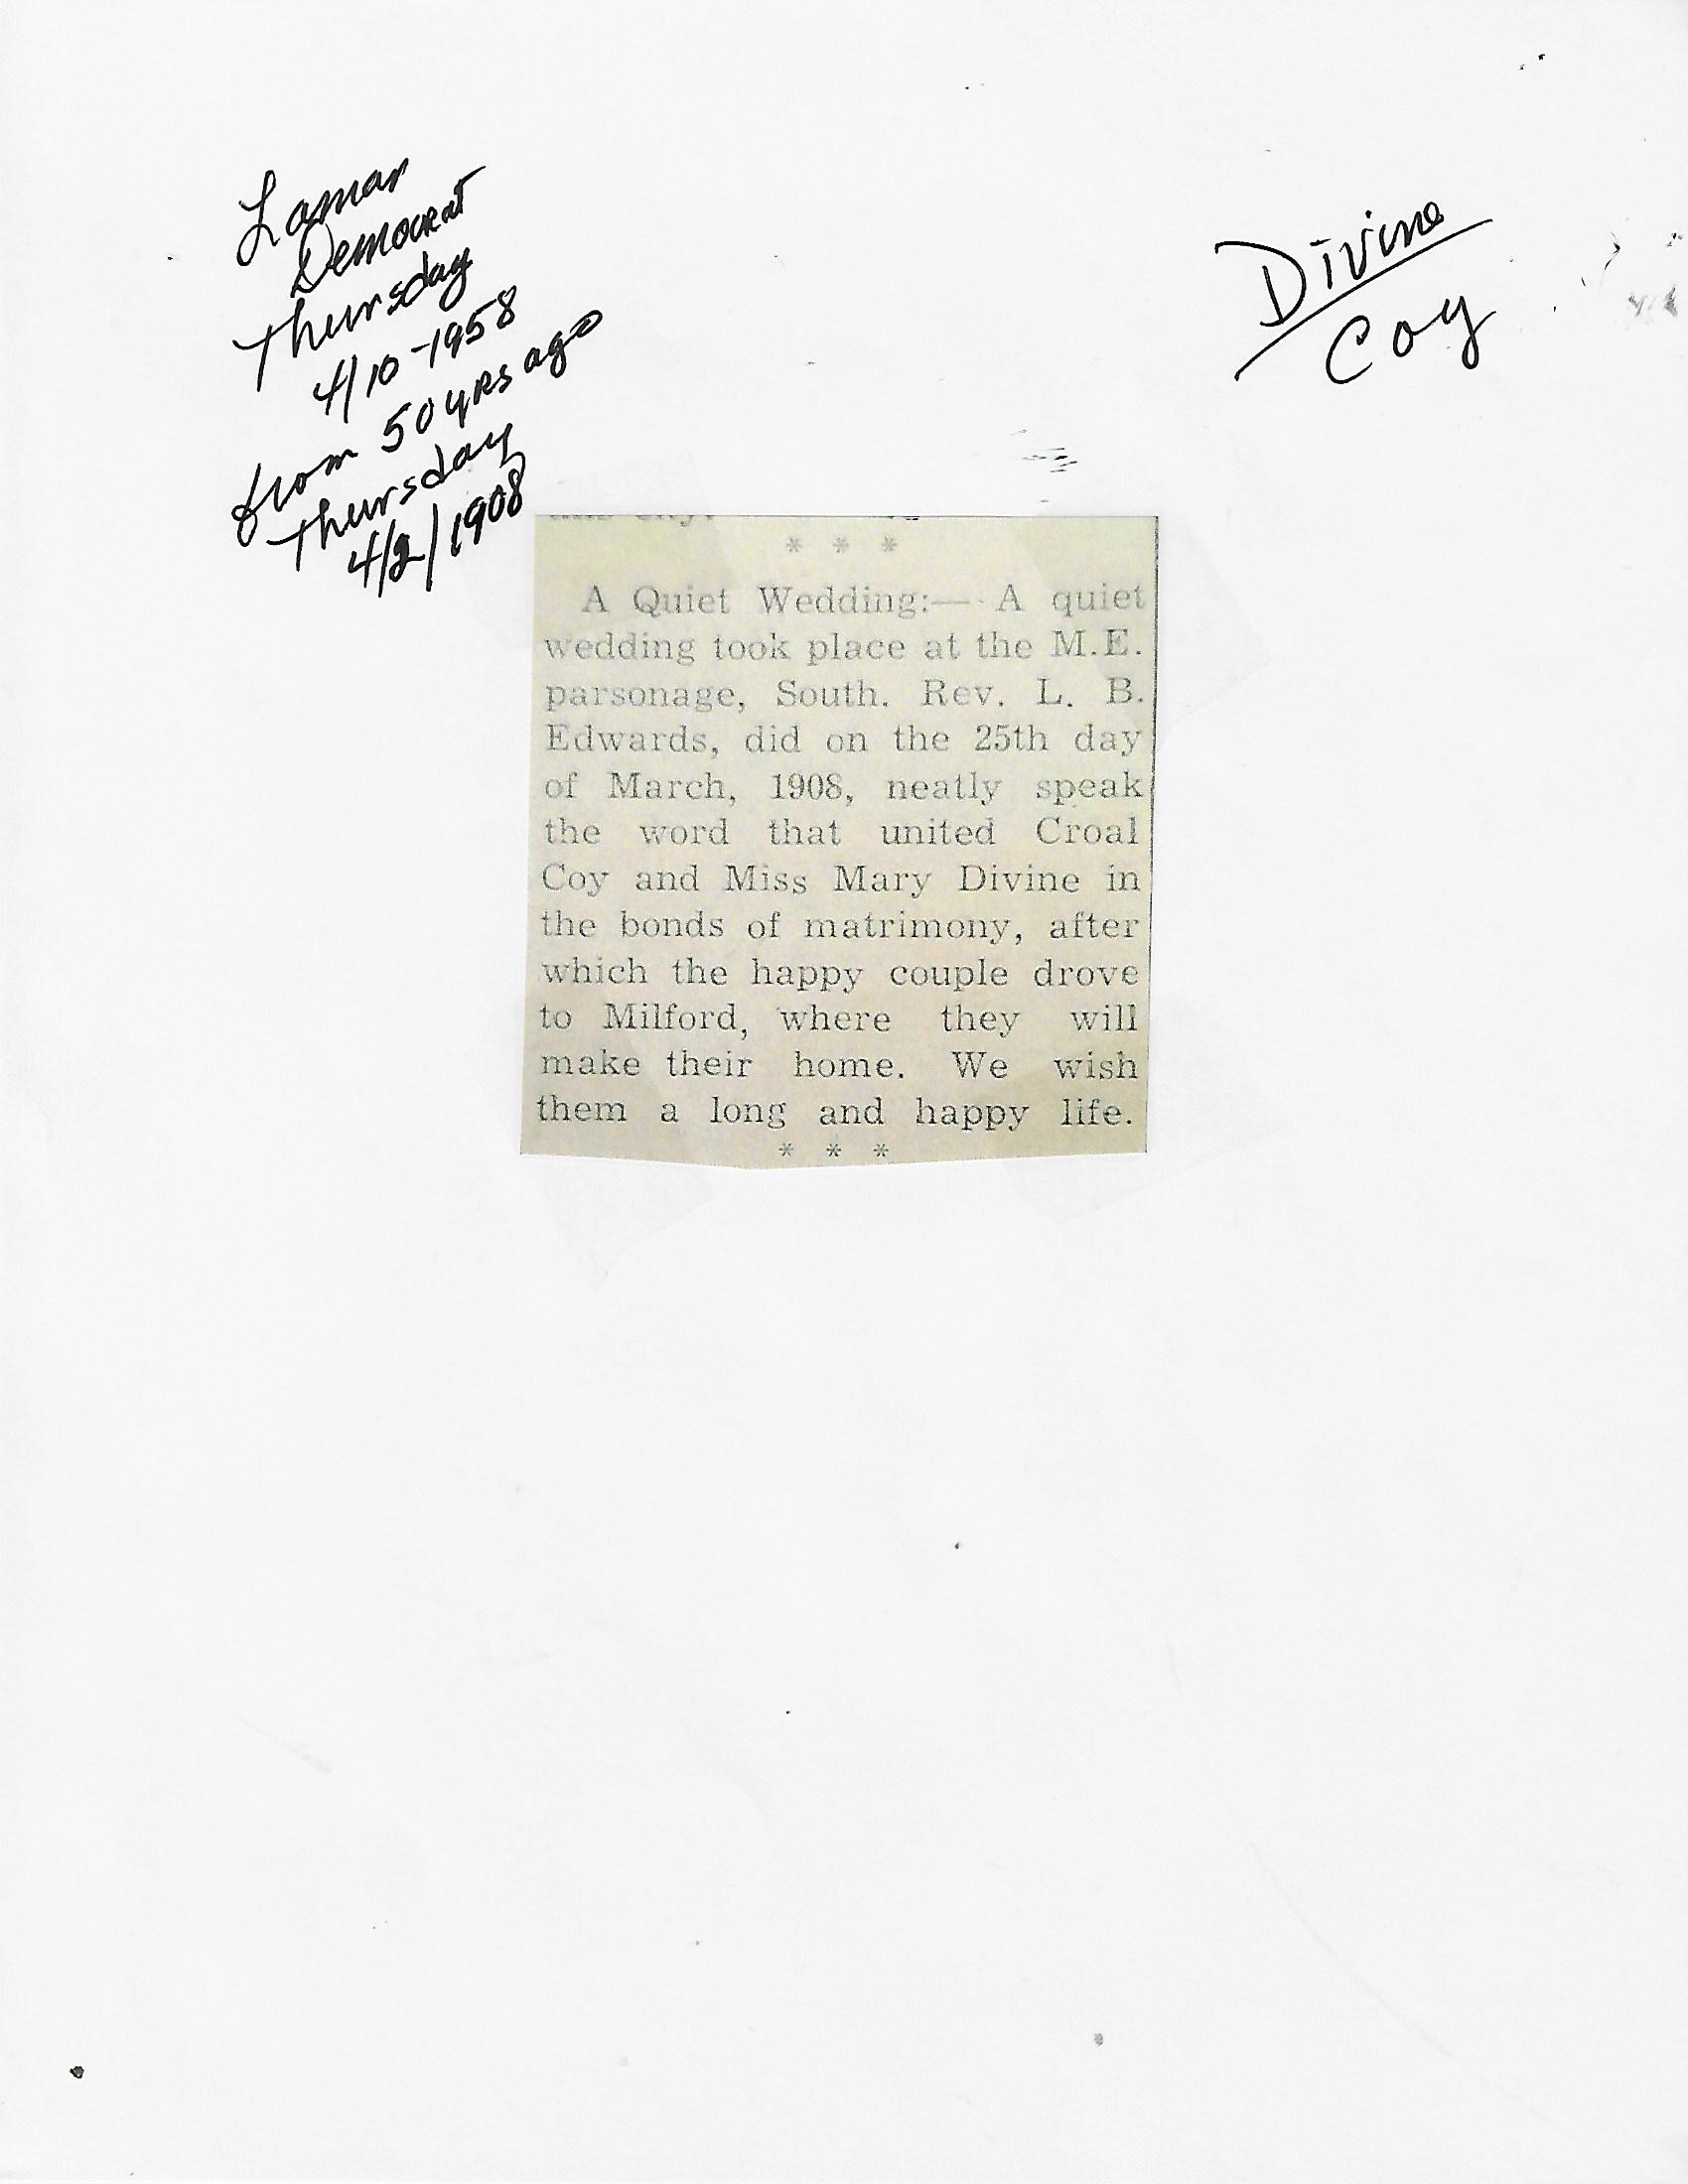 Lamar
Democrat
Thursday
4/10-1958
from 50 yrs ago
Thursday
4/2/1908
Divine
Coy
* * *
A Quiet Wedding:— A quiet
wedding took place at the M.E.
parsonage, South. Rev. L. B.
Edwards, did on the 25th day
of March, 1908, neatly speak
the word that united Croal
Coy and Miss Mary Divine in
the bonds of matrimony, after
which the happy couple drove
to Milford, where they will
make their home. We wish
them a long and happy life.
* * *